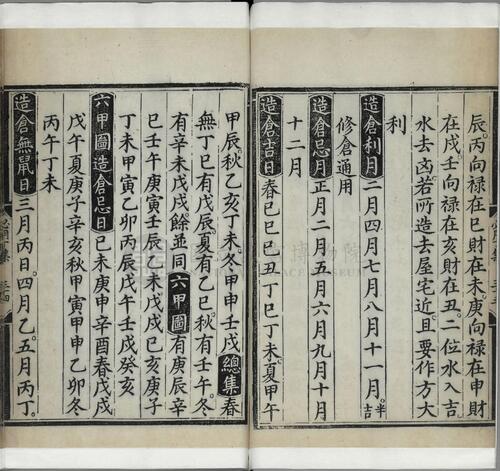 辰。丙向禄在巳財在未。庚向禄在申財
在戌。壬向禄在亥財在丑。二位水入吉。
水去凶。若所造去屋宅近。且要作方大
利
造倉利月 二月四月七月八月十一月。半吉
修倉通用
造倉忌月 正月二月五月六月九月十月
十二月
造倉吉日 春己巳己丑丁巳丁未。夏甲午
甲辰。秋乙亥丁未。冬甲申壬戌 總集 春
無丁巳有戊辰。夏有乙巳。秋有壬午。冬
有辛未戊戌。餘並同 六甲圖 有庚辰辛
巳壬午庚寅壬辰乙未戊戌己亥庚子
丁未甲寅乙卯丙辰戊午壬戌癸亥
六甲圖造倉忌日 己未庚申辛酉。春戊戌
戊午。夏庚子辛亥。秋甲寅甲申乙卯。冬
丙午丁未
造倉無鼠日 三月丙日。四月乙。五月丙丁。